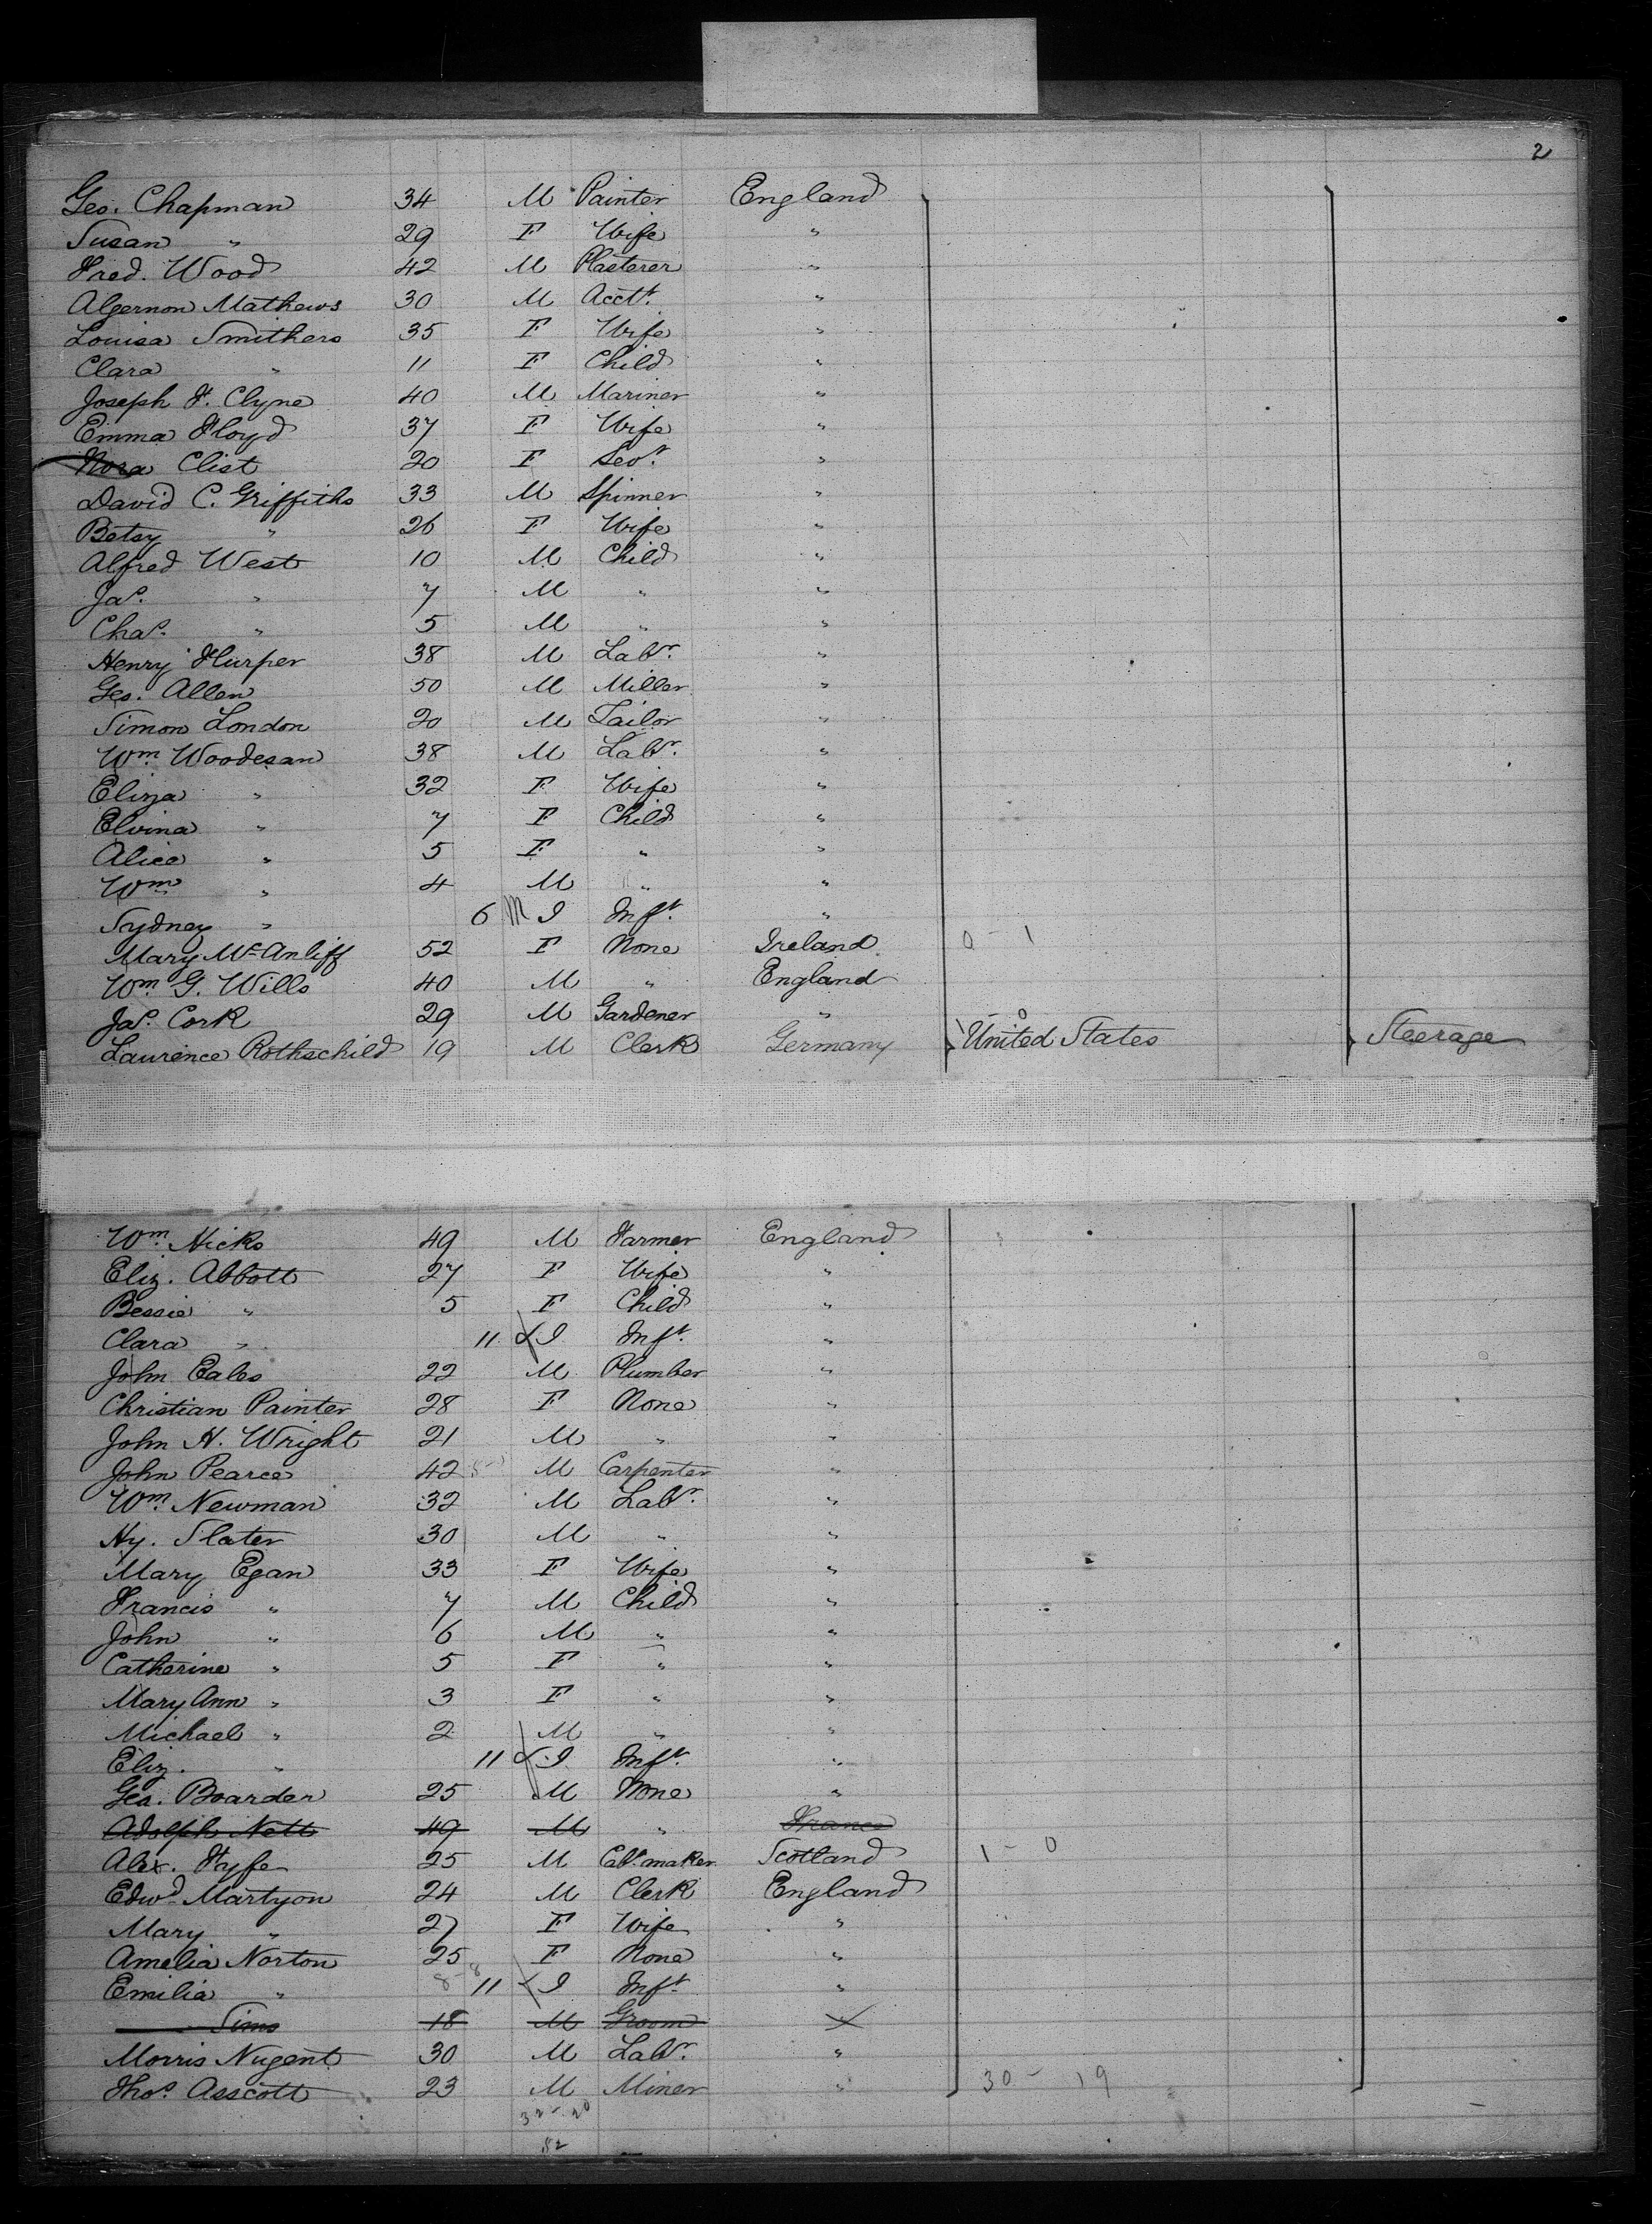 2
Geo. Chapman 34 M Painter England
Susan " 29 F Wife "
Fred. Wood 42 M Plasterer "
Algernon Mathews 30 M Acctt. "
Louisa Smithers 35 F Wife "
Clara " 11 F Child "
Joseph F. Clyne 40 M Mariner "
Emma Floyd 37 F Wife "
Nora Clist 20 F Sevt. "
David C. Griffiths 33 M Spinner "
Betsy " 26 F Wife "
Alfred West 10 M Child "
Jas. " 7 M " "
Chas. " 5 M " "
Henry Hurper 38 M Labr. "
Geo. Allen 50 M Miller "
Simon London 20 M Tailor "
Wm. Woodesan 38 M Labr. "
Eliza " 32 F Wife "
Elvina " 7 F Child "
Alice " 5 F " "
Wm " 4 M " "
Sydney " 6 M I Inft. "
Mary McAnliff 52 F None Ireland 0 - 1
Wm. G. Wills 40 M " England
Jas. Cork 29 M Gardener "
Laurence Rothschild 19 M Clerk Germany United States Steerage
Wm. Nicks 49 M Farmer England
Eliz. Abbott 27 F Wife "
Bessie " 5 F Child "
Clara " 11 I Inft. "
John Eales 22 M Plumber "
Christian Painter 28 F None "
John H. Wright 21 M " "
John Pearce 42 M Carpenter "
Wm. Newman 32 M Labr. "
Hy. Slater 30 M " "
Mary Egan 33 F Wife "
Francis " 7 M Child "
John " 6 M " "
Catherine " 5 F " "
Mary Ann " 3 F " "
Michael " 2 M " "
Eliz. " 11 I Inft. "
Geo. Boarder 25 M None "
Adolph Nett 49 M " France
Alex. Fyfe 25 M Cabt. maker Scotland 1 - 0
Edwd. Martyon 24 M Clerk England
Mary " 27 F Wife "
Amelia Norton 25 F None "
Emilia " 8-8 11 I Inft. "
Sims 18 M Groom "
Morris Nugent 30 M Labr. "
Thos. Asscott 23 M Miner " 30 - 19
32 - 20
52